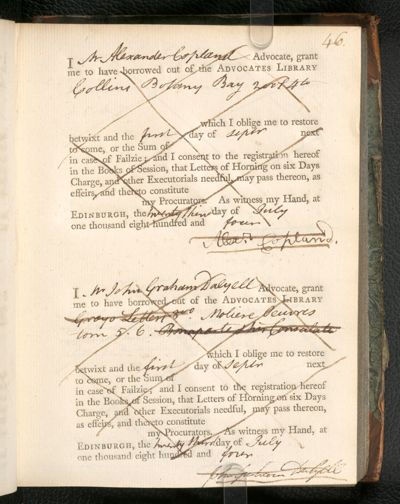 46.
I Mr Alexander Copland Advocate, grant
me to have borrowed out of the ADVOCATES LIBRARY
Collins Botany Bay 2 vol 4to
which I oblige me to restore
betwixt and the first day of Sepr next
to come, or the Sum of
in case of Failzie; and I consent to the registration hereof
in the Books of Session, that Letters of Horning on six Days
Charge, and other Executorials needful, may pass thereon, as
effeirs, and thereto constitute
my Procurators. As witness my Hand, at
EDINBURGH, the twenty third day of July
one thousand eight hundred and four
Alexr Copland.
I. Mr John Graham Dalyell Advocate, grant
me to have borrowed out of the ADVOCATES LIBRARY
Grays Letters 8vo Moliere Oeuvres
tom 5. 6. Bonaparte
which I oblige me to restore
betwixt and the first day of Sepr next
to come, or the Sum of
in case of Failzie; and I consent to the registration hereof
in the Books of Session, that Letters of Horning on six Days
Charge, and other Executorials needful, may pass thereon,
as effeirs, and thereto constitute
my Procurators. As witness my Hand, at
EDINBURGH, the twenty third day of July
one thousand eight hundred and four
John Graham Dalyell